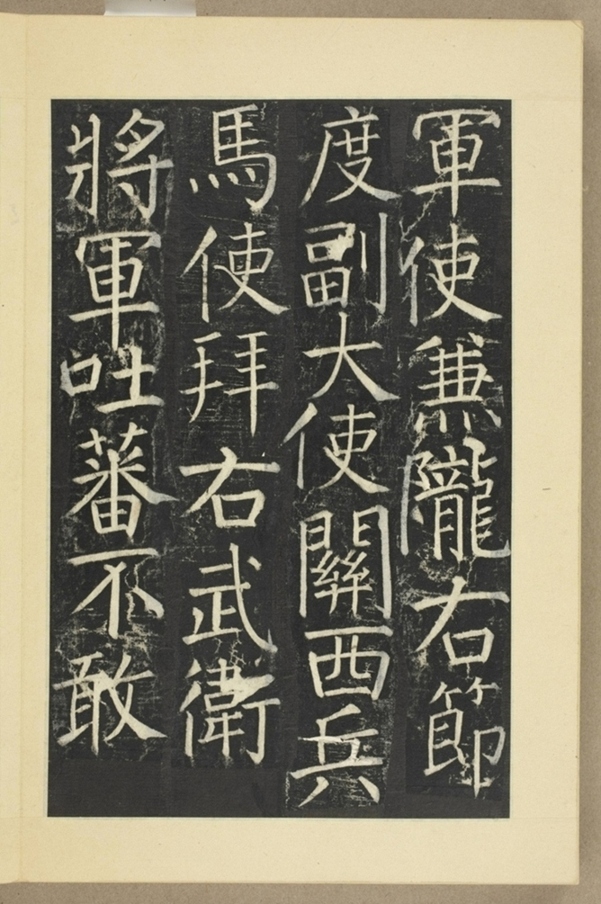 軍使兼隴右節
度副大使關西兵
馬使拜右武衛
將軍吐蕃不敢